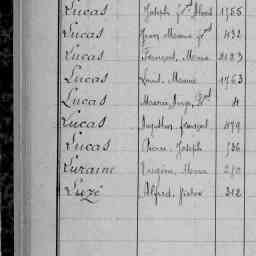 Lucas Joseph 1755
Lucas Jean Marie 432
Lucas François, Marie 2183
Lucas Louis Marie 1763
Lucas Marie, Ange, 4
Lucas Augustin, François 479
Lucas Pierre, Joseph 736
Luzaine Eugène, Marie 270
Luzé Alfred, Victor 312